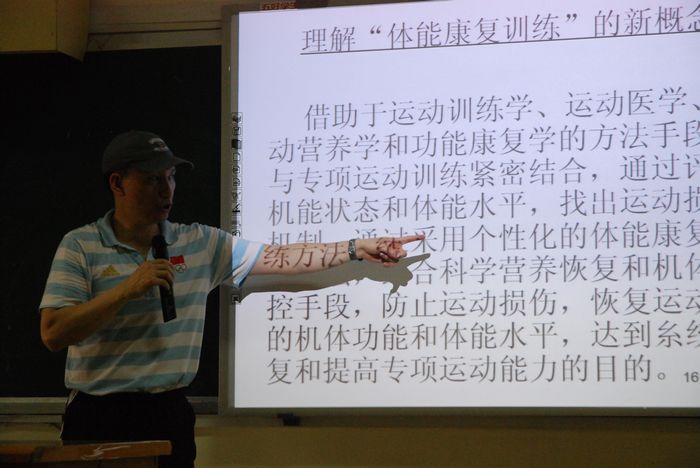 理解“体能康复训练”的新概念
借助于运动训练学、运动医学、
动营养学和功能康复学的方法手段
与专项运动训练紧密结合，通过
机能状态和体能水平，找出运动损
机制，通过采用个性化的体能康复
练方法 合科学营养恢复和机体
控手段，防止运动损伤，恢复运
的机体功能和体能水平，达到系统
复和提高专项运动能力的目的。
16